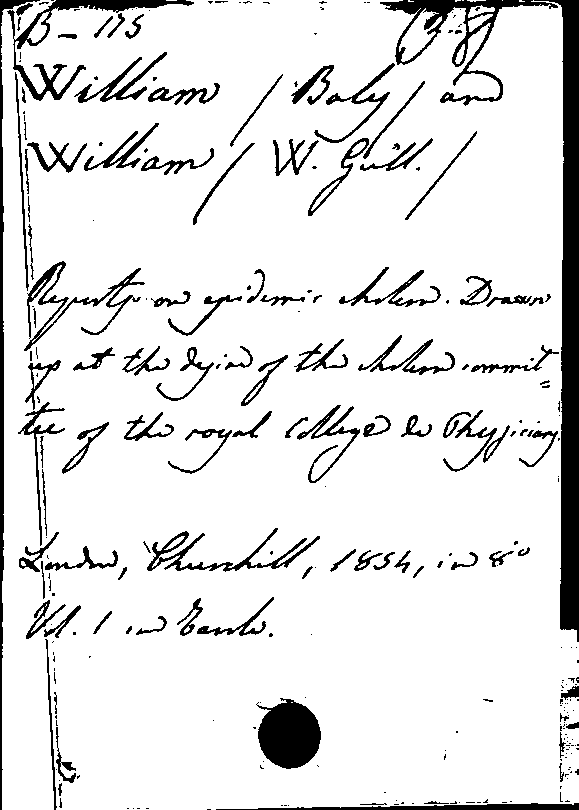 B - 175
William / Baly / and
William / W. Gull. /
Reports on epidemic cholera. Drawn
up at the desire of the cholera commit=
tee of the royal College de Physicians.
London, Churchill, 1854, in 8°
Vol. 1 in